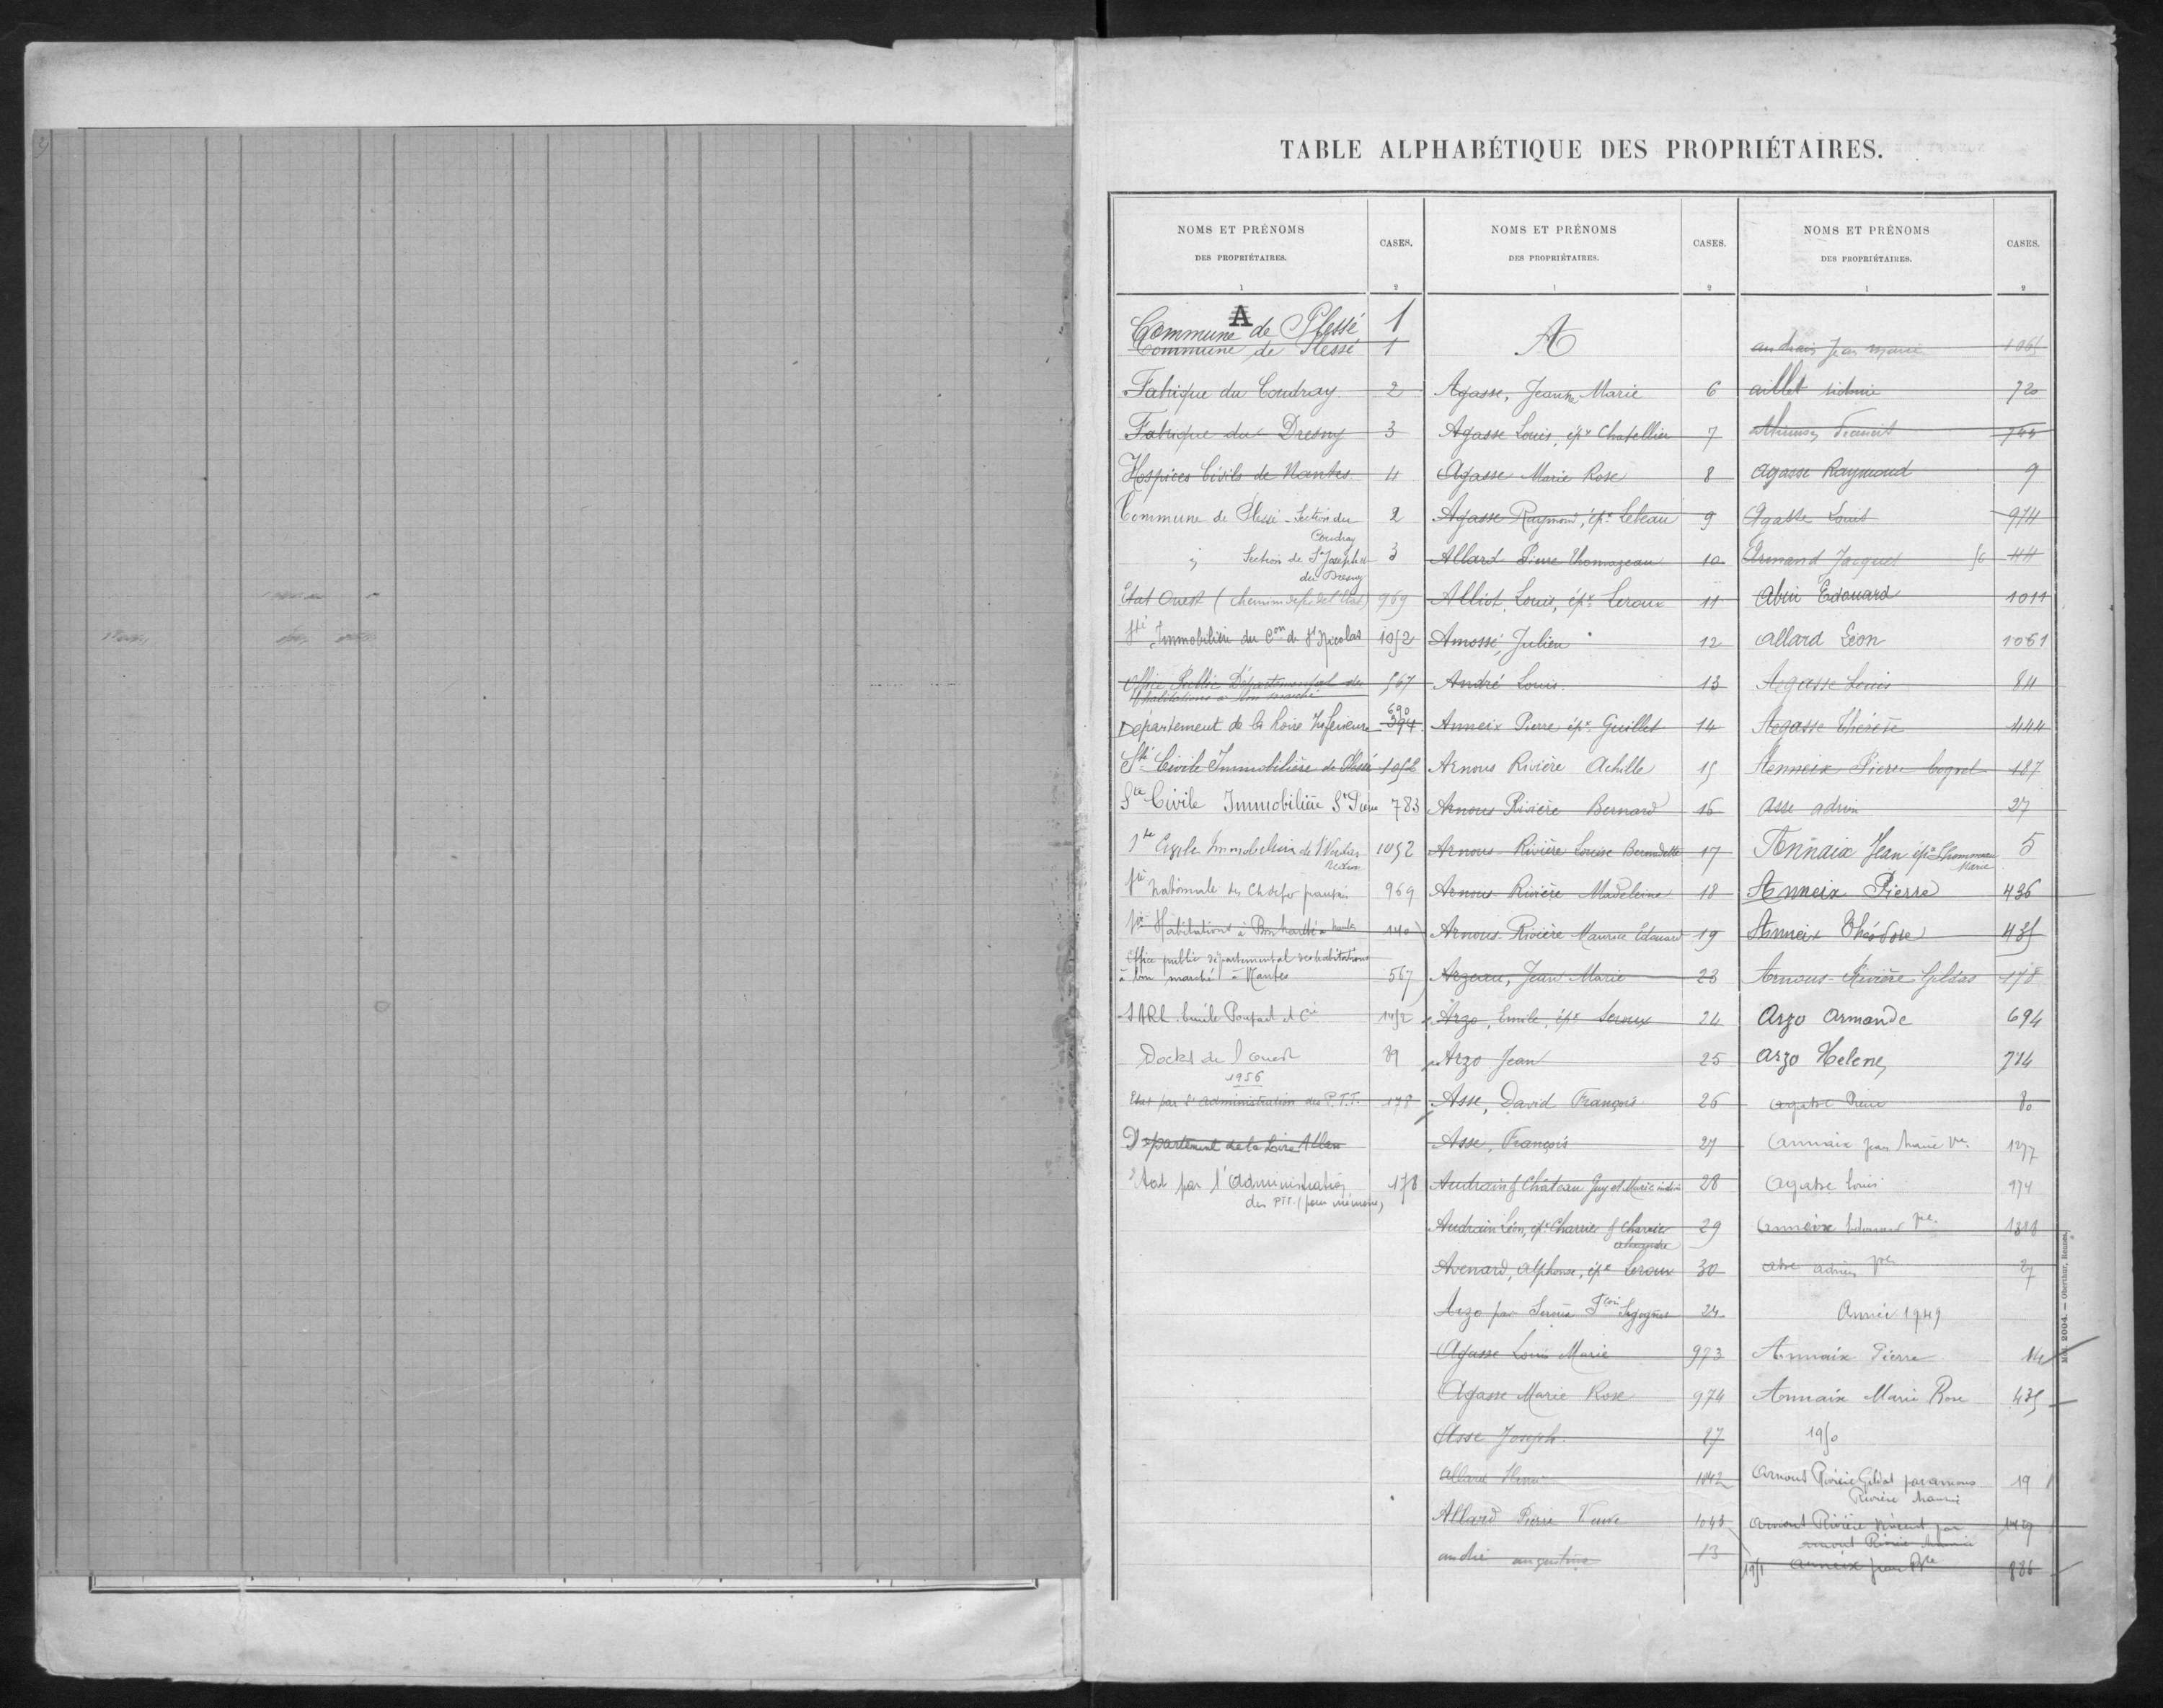 TABLE ALPHABÉTIQUE DES PROPRIÉTAIRES.
NOMS ET PRÉNOMS
DES PROPRIÉTAIRES.
1
CASES.
2
A
Commune de Plessé 1
Commune de Plessé 1
Fabrique du Coudray 2
Fabrique du Dresny 3
Hospices Civils de Nantes 4
Commune de Plessé - Section du 2
Coudray
Section de St Joseph 3
du Dresny
Etat Ouest (chemin de f. de l'Etat) 969
Sté Immobilière du Con de St Nicolas 1052
Office Public Départemental des 567
Habitations à bon marché
Département de la Loire Inférieure 690
394
Sté Civile Immobilière de Plessé 1052
Sté Civile Immobilière St Pierre 783
Sté Civile Immobilière de St Nicolas 1052
Redon
Sté Nationale des Ch de fer français 969
Sté Habitations à Bon Marché à Nantes 140
Office public départemental des habitations
à bon marché à Nantes 567
SARL Emile Poupart et Cie
Docks de l'ouest 89
1956
Etat par l'administration des P.T.T. 178
Département de la Loire Atlan
Etat par l'administration 178
des PTT. (pour mémoire)
NOMS ET PRÉNOMS
DES PROPRIÉTAIRES.
1
CASES.
2
A
Agasse, Jeanne Marie 6
Agasse Louis, épx Chatellier 7
Agasse Marie Rose 8
Agasse Raymond, épx Lebeau 9
Allard Pierre Thomazeau 10
Alliot, Louis, épx Leroux 11
Amossé, Julien 12
André Louis 13
Anneix Pierre épx Guillet 14
Arnous Rivière Achille 15
Arnous Rivière Bernard 16
Arnous-Rivière Louise Bernadette 17
Arnous-Rivière Madeleine 18
Arnous-Rivière Maurice Edouard 19
Argeau, Jean Marie 23
Arzo, Emile, épx Leroux 24
Arzo Jean 25
Asse, David François 26
Asse, François 27
Audrain & Château Guy et Marie indivis 28
Audrain Léon, épx Charrier & Charrier 29
alexandre
Avenard, Alphonse, épx Leroux 30
Arzo par Leroux 24
Agasse Louis Marie 973
Agasse Marie Rose 974
Asse Joseph 27
Allard Henri 1042
Allard Pierre Veuve 1043
andré augustine 13
NOMS ET PRÉNOMS
DES PROPRIÉTAIRES.
1
CASES.
2
audrain Jean Marie 1065
aillet 720
744
Agasse Raymond 9
Agasse Louis 974
Armand Jacques 44
Abin Edouard 1011
Allard Léon 1061
Agasse Louis 84
Agasse Thérèse 444
Anneix Pierre 187
Asse adrien 27
Annaix Jean épx Lhommeau 5
Marie
Anneix Pierre 436
Anneix Théodore 435
Arnous-Rivière Gildas 178
Arzo Armande 694
Arzo Helene 714
agasse Pierre 80
Annaix Jean Marie Ve 1277
Agasse Louis 974
Anneix Edouard 1318
asse adrien 27
Année 1949
Annaix Pierre 14
Annaix Marie Rose 435
1950
Arnous Rivière Gildas par arnous 19
Rivière Maurice
Arnous Rivière Vincent par
arnous Rivière Maurice
1951 Anneix Jean 886
Mod. 2004. — Oberthur, Rennes.